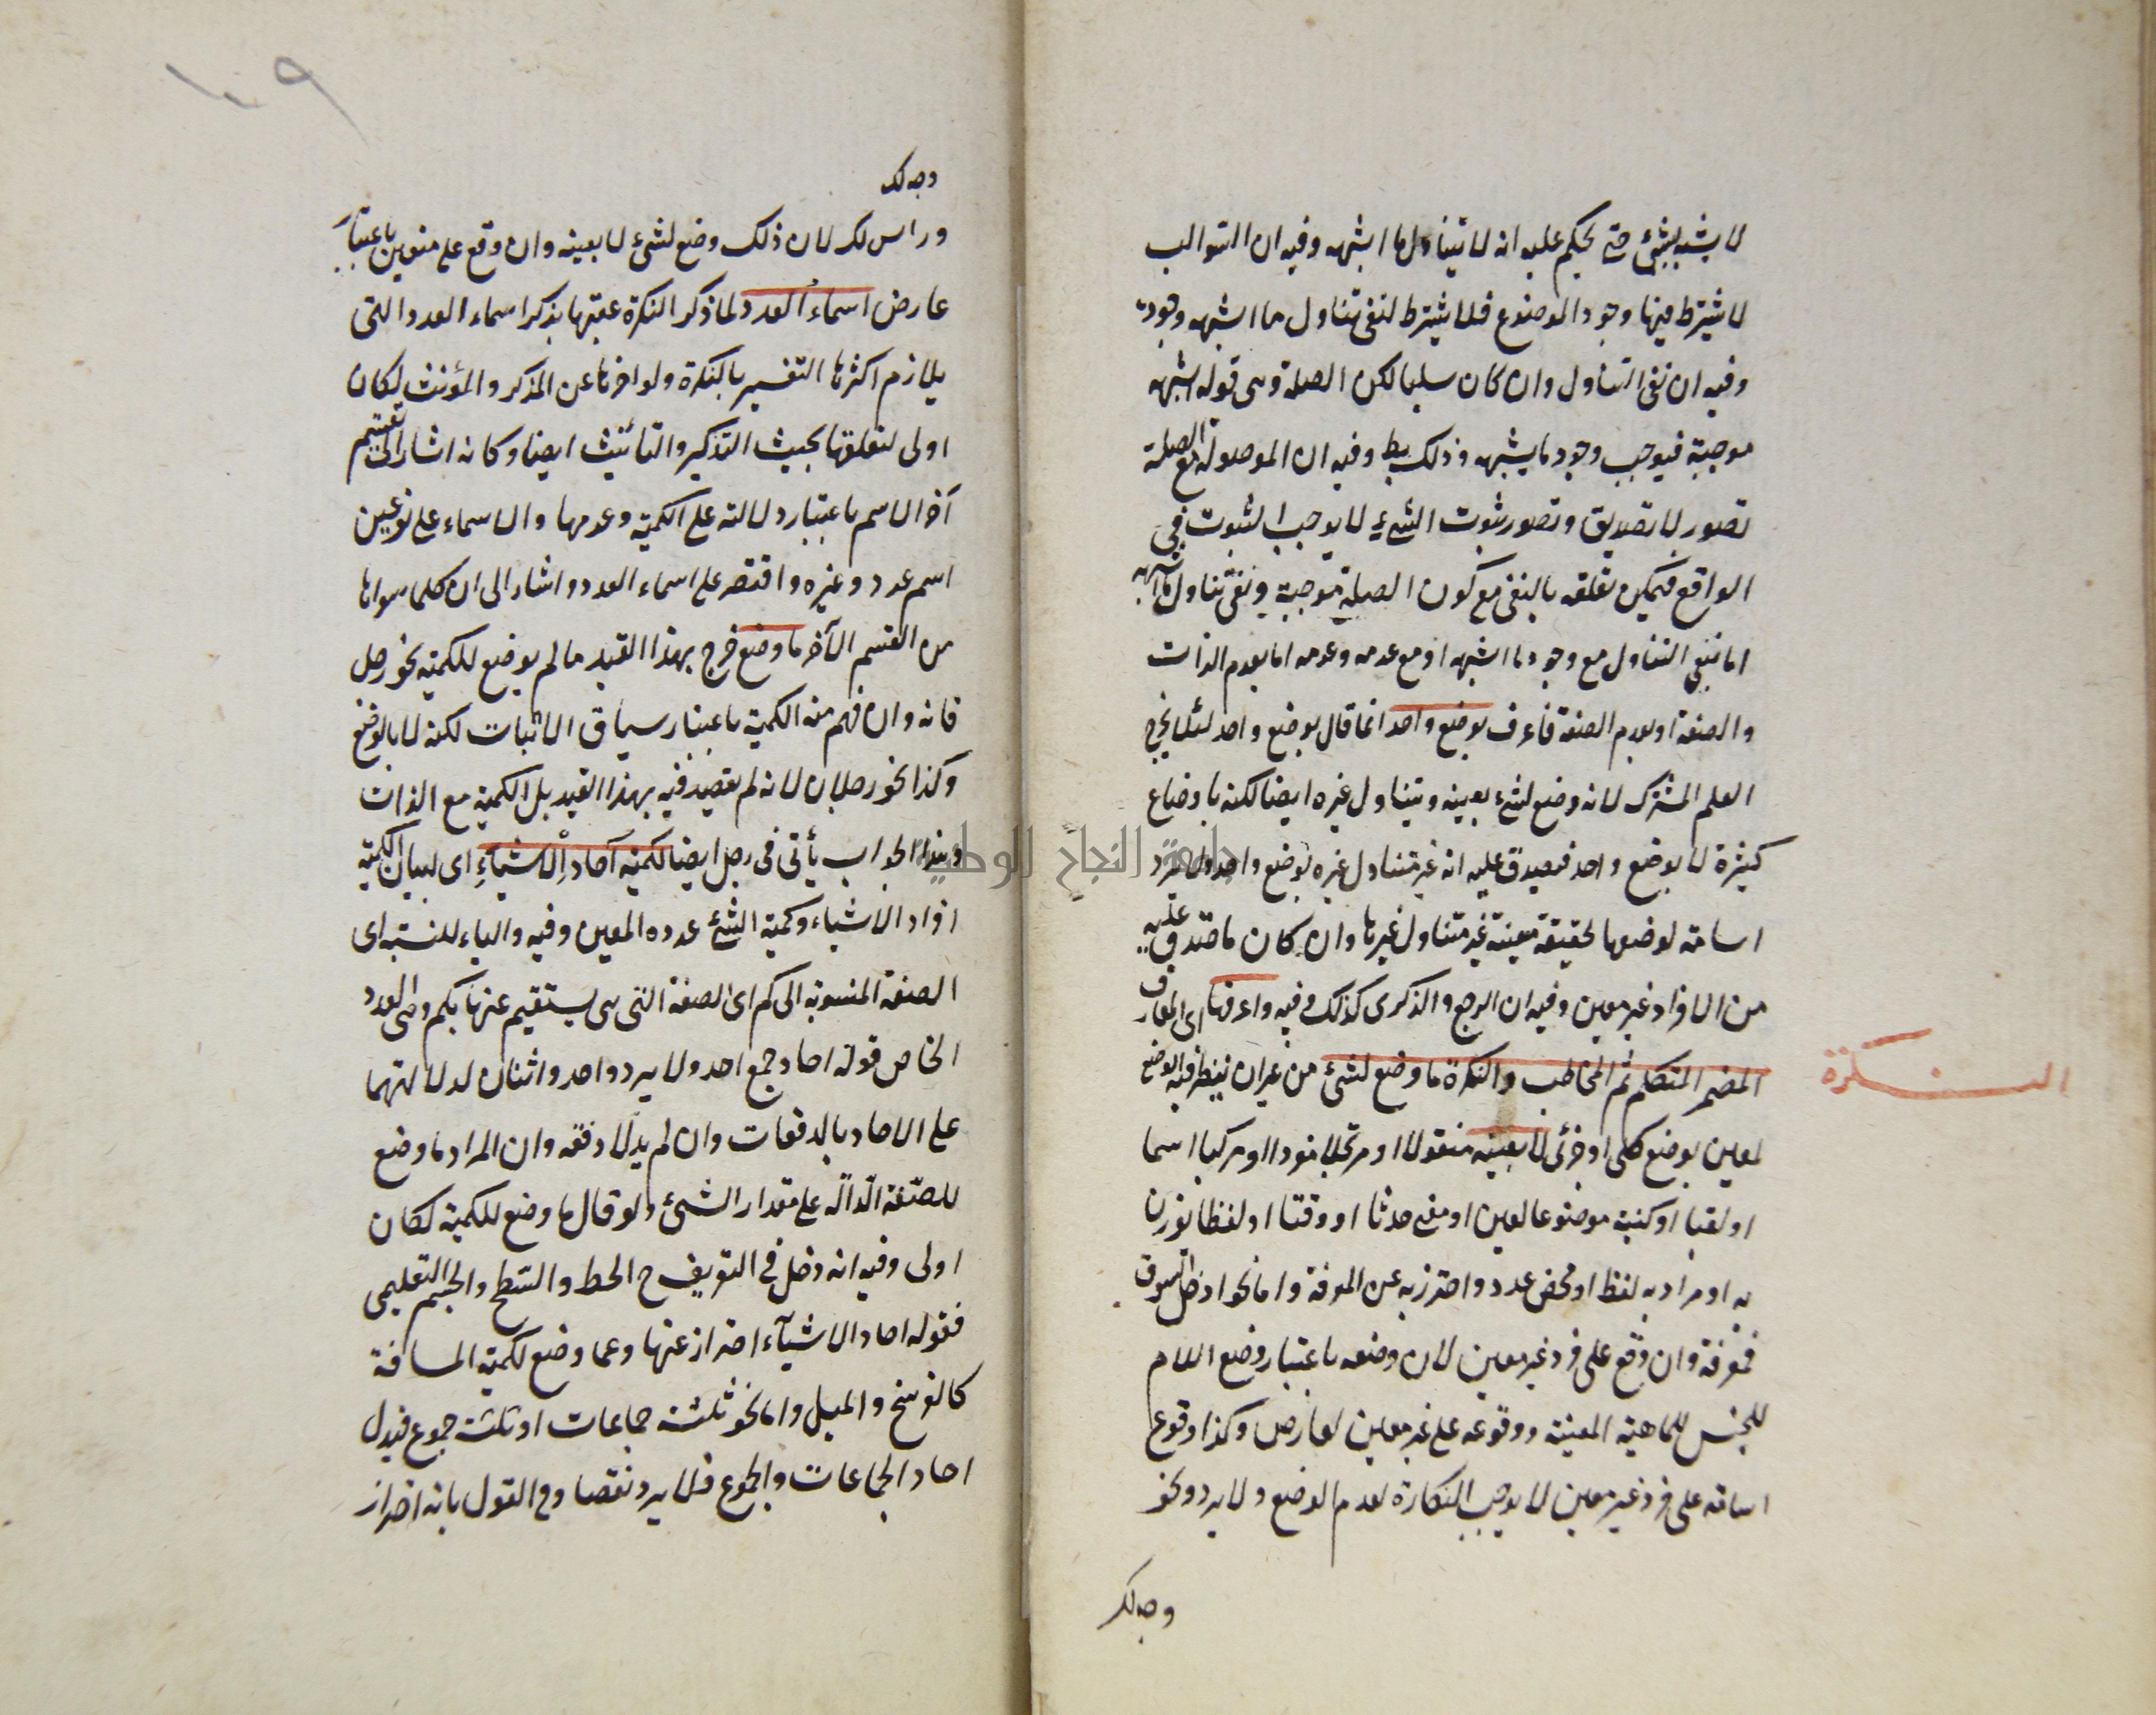 لا يشبه بشئ حتى يحكم عليه انه لا يتناول ما اشبهه وفيه ان السوالب
لا يشترط فيها وجود الموضوع فلا يشترط لنفى تناول ما اشبهه وجوده
وفيه ان نفى التناول وان كان سلبا لكن الصلة وهى قوله اشبهه
موجبة فيوجب وجود ما يشبهه وذلك وفيه ان الموصول مع الصلة
تصور لا تصديق وتصور ثبوت الشئ لا يوجب الثبوت فى
الواقع فيمكن تعلقه بالنفى مع كون الصلة موجبة ونفى تناول ما اشبهه
اما بنفى التناول مع وجود ما اشبهه او مع عدمه وعدمه اما بعدم الذات
والصفة او بعدم الصفة فاعرف بوضع واحد انما قال بوضع واحد لئلا يخرج
العلم المشترك لانه وضع لشئ بعينه ويتناول غيره ايضا لكنه باوضاع
كثيرة لا بوضع واحد فيصدق عليه انه غير متناول غيره بوضع واحد ولا يرد
اسامة لوضعها لحقيقة معينة غير متناول غيرها وان كان ما صدق عليه
من الافراد غير معين وفيه ان الرجع والذكرى كذلك وفيه واعرفها اى المعارف
المضمر المتكلم ثم المخاطب والنكرة ما وضع لشئ من غير ان ينظر فيه الوضع
النكرة
لمعين بوضع كلى او جزئى لا بعينه منقولا او مرتجلا مفردا او مركبا اسما
او لقبا او كنية موضوعا لعين او معنى حدثا او وقتا او لفظا يوزن
به او مراد به لفظ او محض عدد واحترز به عن المعرفة واما نحو ادخل السوق
فمعرفة وان وقع على فرد غير معين لان وضعه باعتبار وضع اللام
للجنس للماهية المعينة ووقوعه على غير معين لعارض وكذا وقوع
اسامة على فرد غير معين لا يوجب النكارة لعدم الوضع ولا يرد ونحو
وجه لك
١٠٩
وجه لك
وراس لك لان ذلك وضع لشئ لا بعينه وان وقع على معين باعتبار
عارض اسماء العدد لما ذكر النكرة عقبها بذكر اسماء العدد التى
يلازم اكثرها التفسير بالنكرة ولو اخرها عن المذكر والمؤنث لكان
اولى لتعلقها بحيث التذكير والتأنيث ايضا وكانه اشار الى تقسيم
آخر للاسم باعتبار دلالته على الكمية وعدمها والاسماء على نوعين
اسم عدد وغيره واقتصر على اسماء العدد واشار الى ان كلما سواها
من القسم الآخر ما وضع خرج بهذا القيد ما لم يوضع للكمية نحو رجل
فانه وان فهم منه الكمية باعتبار سياق الاثبات لكنه لا بالوضع
وكذا نحو رجلان لانه لم يقصد فيه بهذا القيد بل الكمية مع الذات
وبهذا الجواب يأتى فى رجل ايضا لكمية آحاد الاشياء اى لبيان كمية
افراد الاشياء وكمية الشئ عدده المعين وفيه والياء للنسبة اى
الصفة المنسوبة الى كم اى الصفة التى هى يستفهم عنها بكم وهى العدد
الخاص قوله احاد جمع احد ولا يرد واحد واثنان لدلالتهما
على الاحاد بالدفعات وان لم يدلا دفعة وان المراد ما وضع
للصفة الدالة على مقدار الشئ ولو قال ما وضع للكمية لكان
اولى وفيه انه دخل فى التعريف ح الخط والسطح والجسم التعليمى
فقوله احاد الاشياء احتراز عنها وعما وضع لكمية المسافة
كالفرسخ والميل واما نحو ثلثة جماعات او ثلثة جموع فيدل
احاد الجماعات والجموع فلا يرد نقضا وفى القول بانه احتراز
جامعة النجاح الوطنية